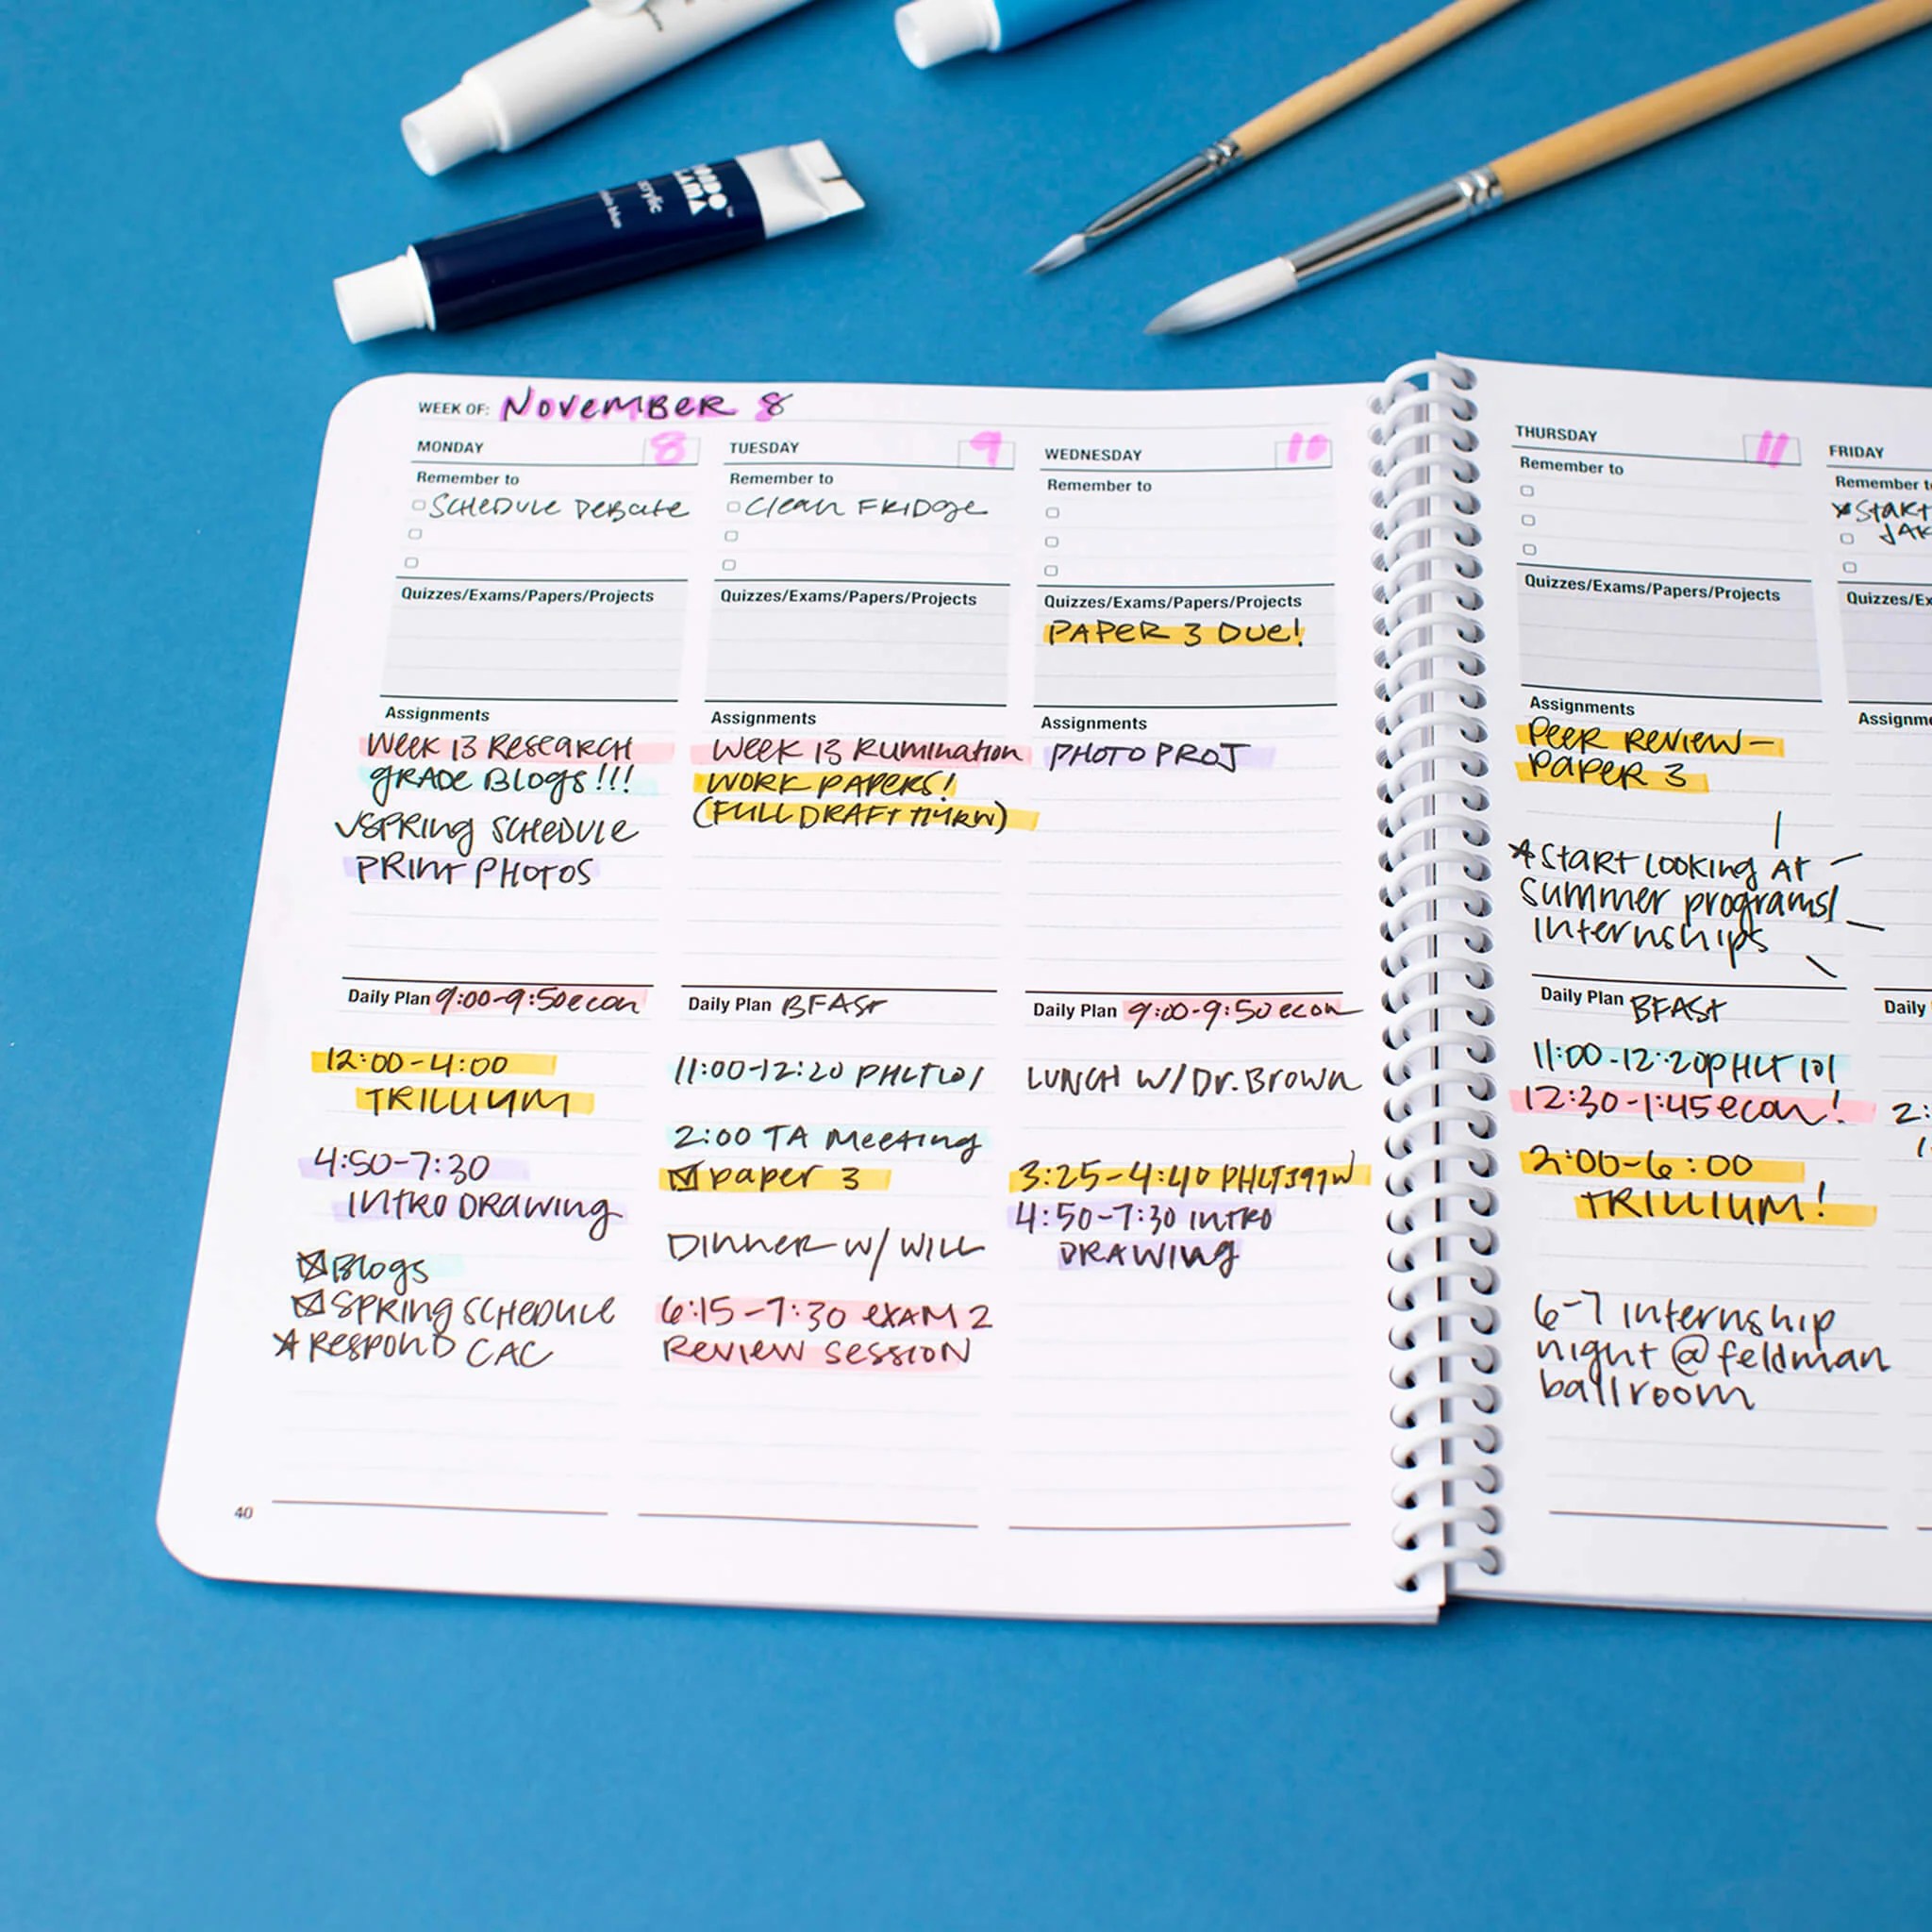 WEEK OF: November 8
MONDAY 8
Remember to
Schedule Debate
Quizzes/Exams/Papers/Projects
Assignments
Week 13 Research
Grade Blogs!!!
✓Spring Schedule
Print Photos
Daily Plan 9:00-9:50 econ
12:00-4:00
TRILLIUM
4:50-7:30
Intro Drawing
☒Blogs
☑Spring Schedule
☆Respond CAC
40
TUESDAY 9
Remember to
Clean Fridge
Quizzes/Exams/Papers/Projects
Assignments
Week 13 Rumination
Work Papers!
(Full Draft
Daily Plan BFAST
11:00-12:20 PHLT101
2:00 TA Meeting
☑paper 3
Dinner w/ Will
6:15-7:30 exam 2
Review Session
WEDNESDAY 10
Remember to
Quizzes/Exams/Papers/Projects
Paper 3 Due!
Assignments
Photo Proj
Daily Plan 9:00-9:50 econ
Lunch w/Dr. Brown
3:25-4:40
4:50-7:30 Intro
Drawing
THURSDAY 11
Remember to
Quizzes/Exams/Papers/Projects
Assignments
Peer Review-
Paper 3
☆Start looking at
summer programs/
internships
Daily Plan BFAST
11:00-12:20 PHLT 101
12:30-1:45 econ!
2:00-6:00
TRILLIUM!
6-7 internship
night @ feldman
ballroom
FRIDAY
Remember
Start
Daily
acrylic
blue